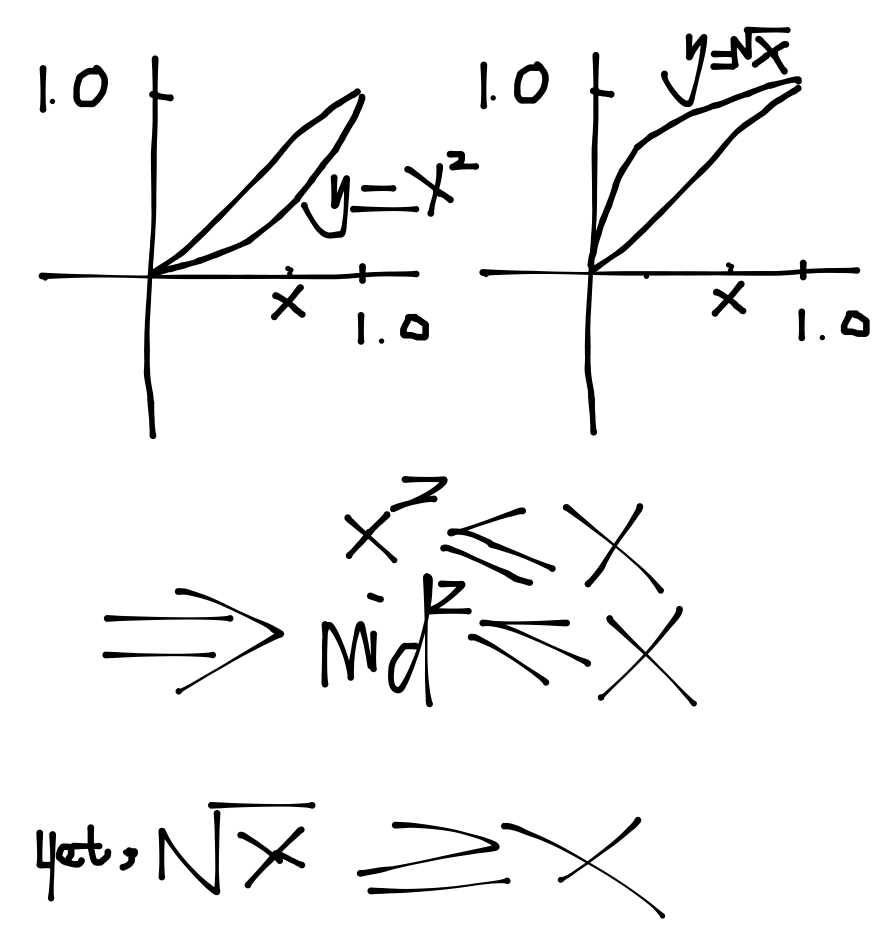 1.0
y=x²
x
1.0
1.0
y=√x
x
1.0
x² ≤ x
⇒ mid² ≤ x
yet, √x ≥ x